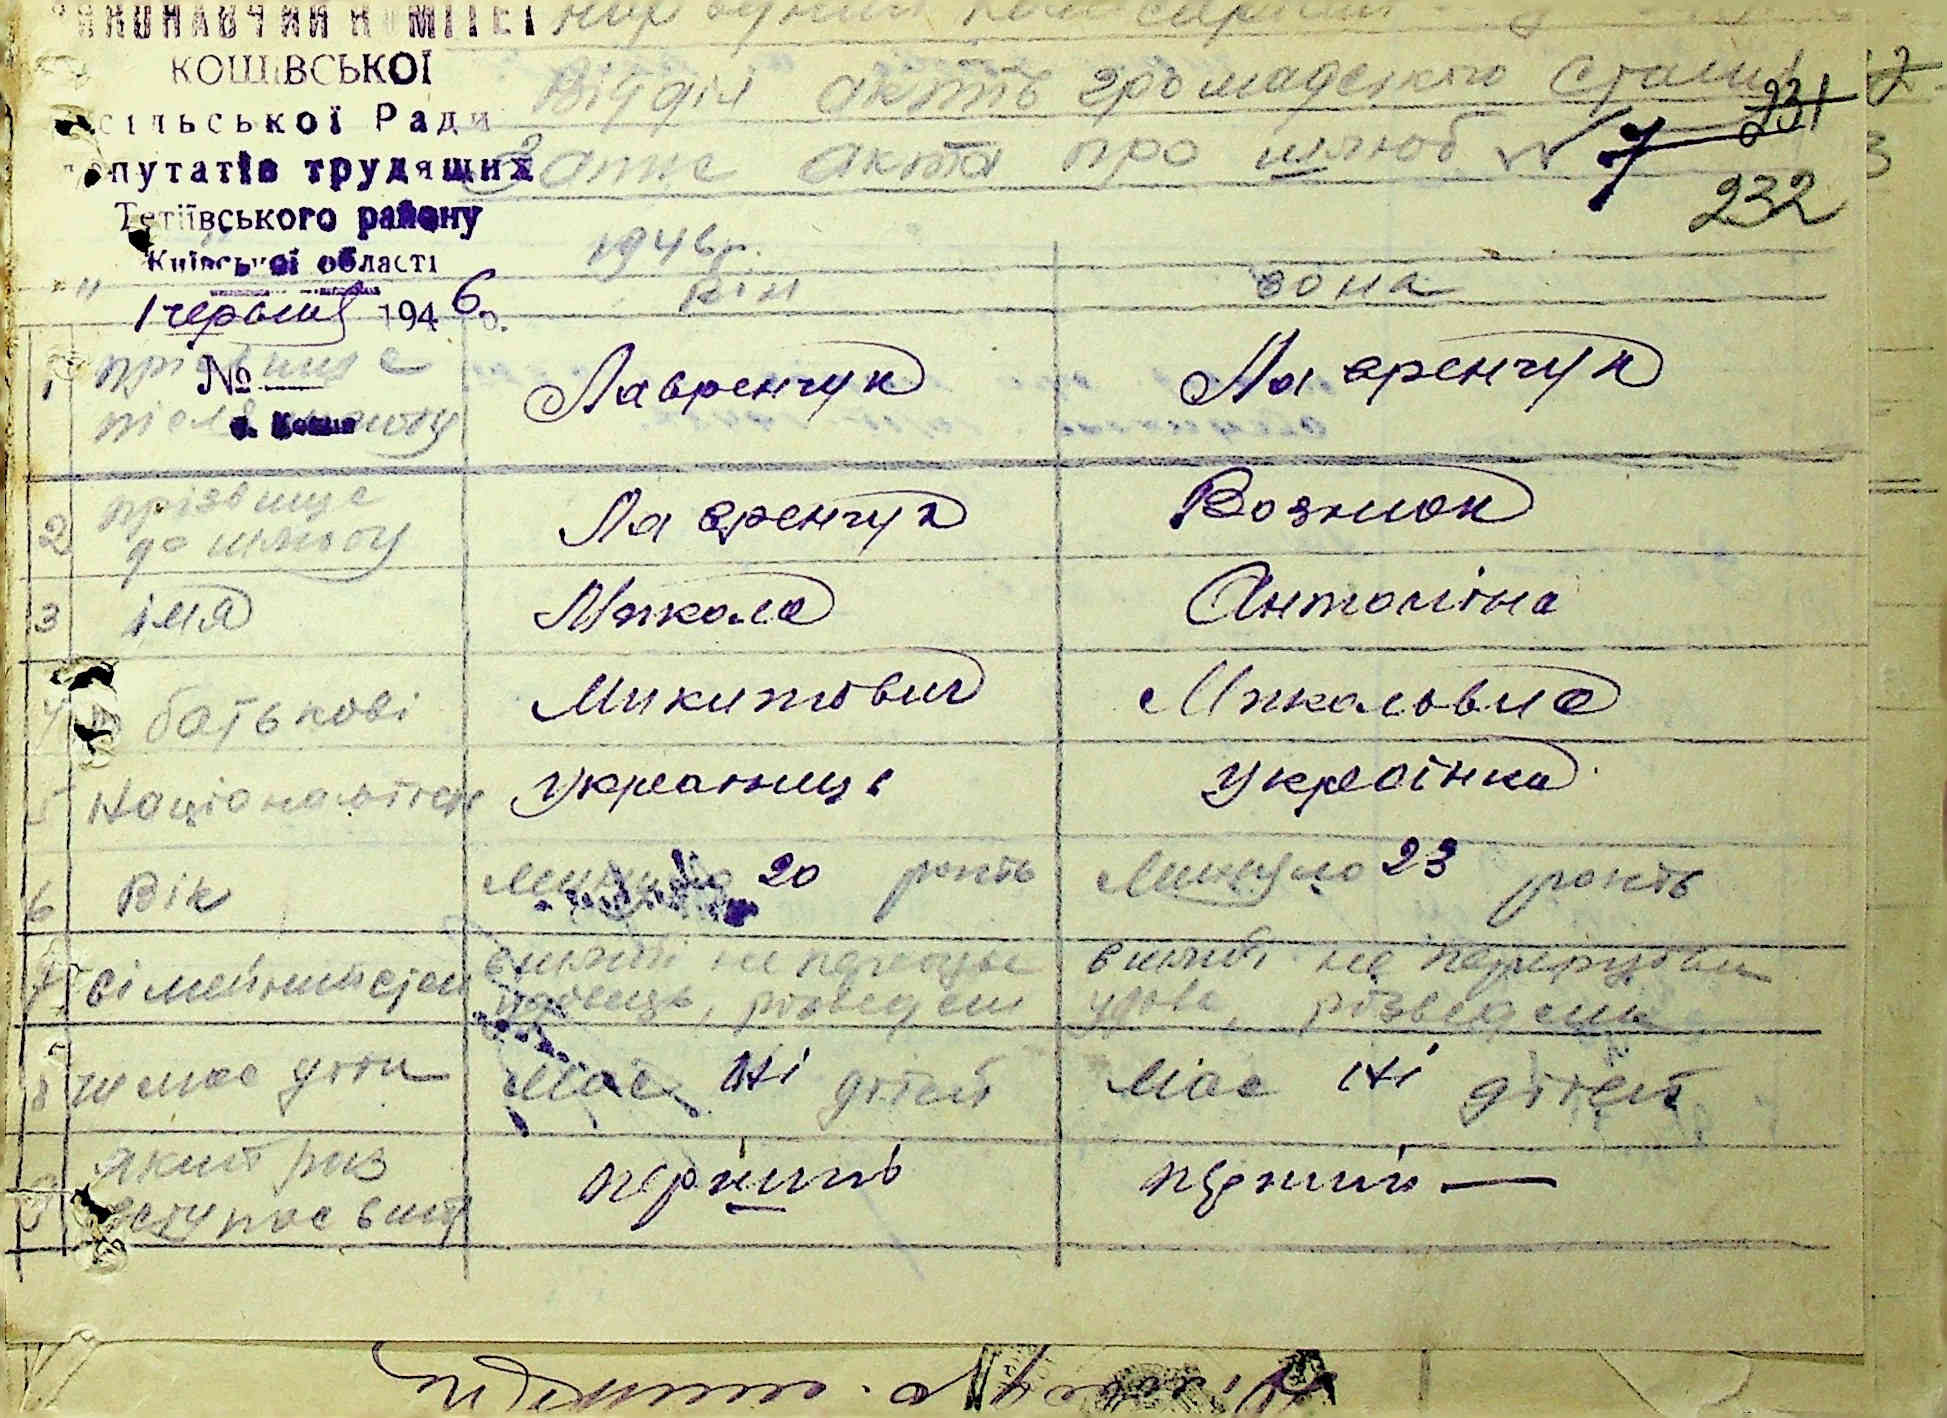 КОМІТЕТ
КОШІВСЬКОЇ
сільської Ради
путатів трудящих
Тетіївського району
Київської області
1 червня 1946 р.
№
с. Кошів
Відділ актів громадського стану
Запис акта про шлюб № 7
231
232
1946 р.
Він Вона
1 прізвище після шлюбу Лавренчук Лавренчук
2 прізвище до шлюбу Лавренчук Возн
3 імя Микола Антоніна
4 по батькові Микитович Миколовна
5 Національність Українць Українка
6 Вік Минуло 20 років Минуло 23 років
7 сімейний стан в шлюбі не перебував удовець, розведений в шлюбі не перебувала удова, розведена
8 чи має діти Має ні дітей Має ні дітей
9 який раз вступає в шлюб перший перший —